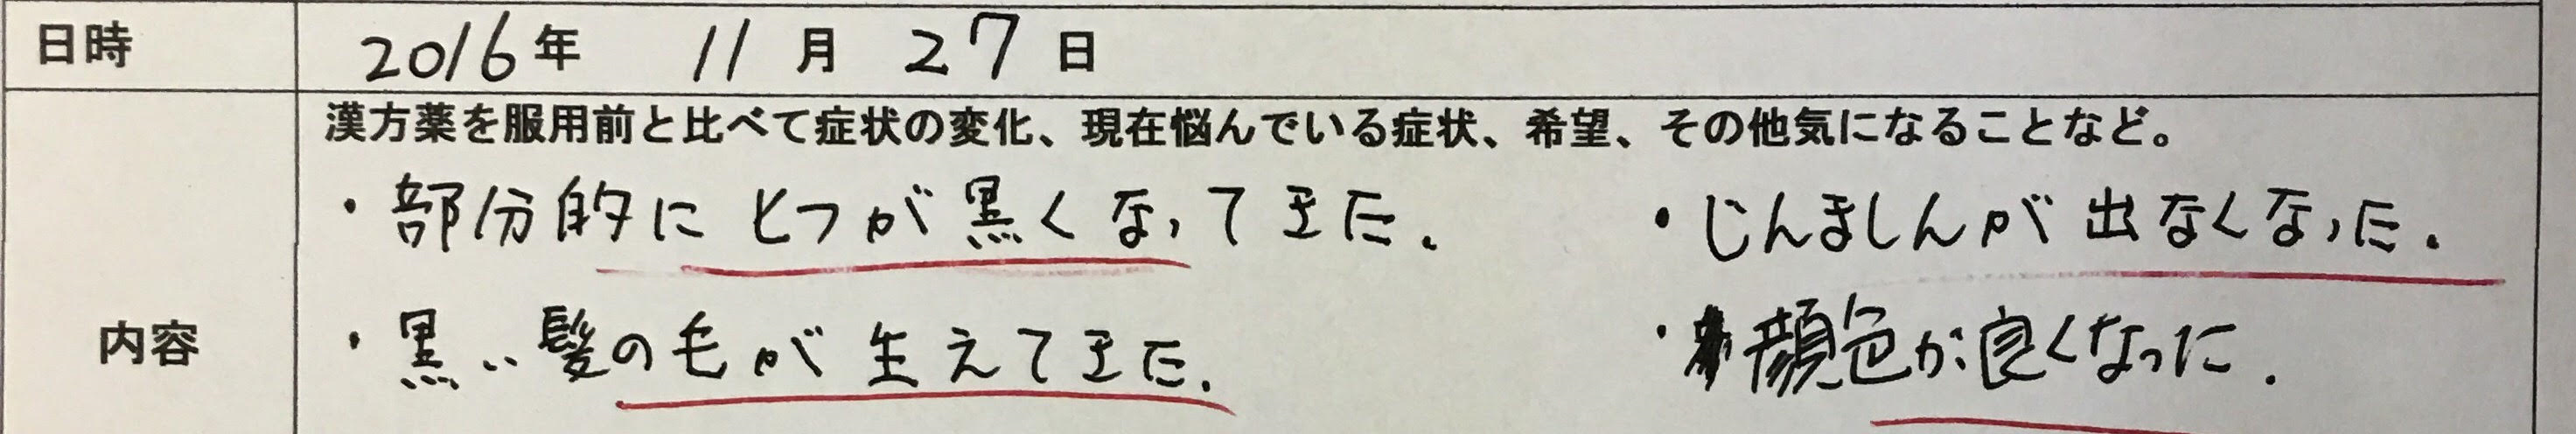 日時 2016年 11月 27日
漢方薬を服用前と比べて症状の変化、現在悩んでいる症状、希望、その他気になることなど。
内容
・部分的にとつが黒くなってきた.
・黒い髪の毛が生えてきた.
・じんましんが出なくなった.
・顔色が良くなった.